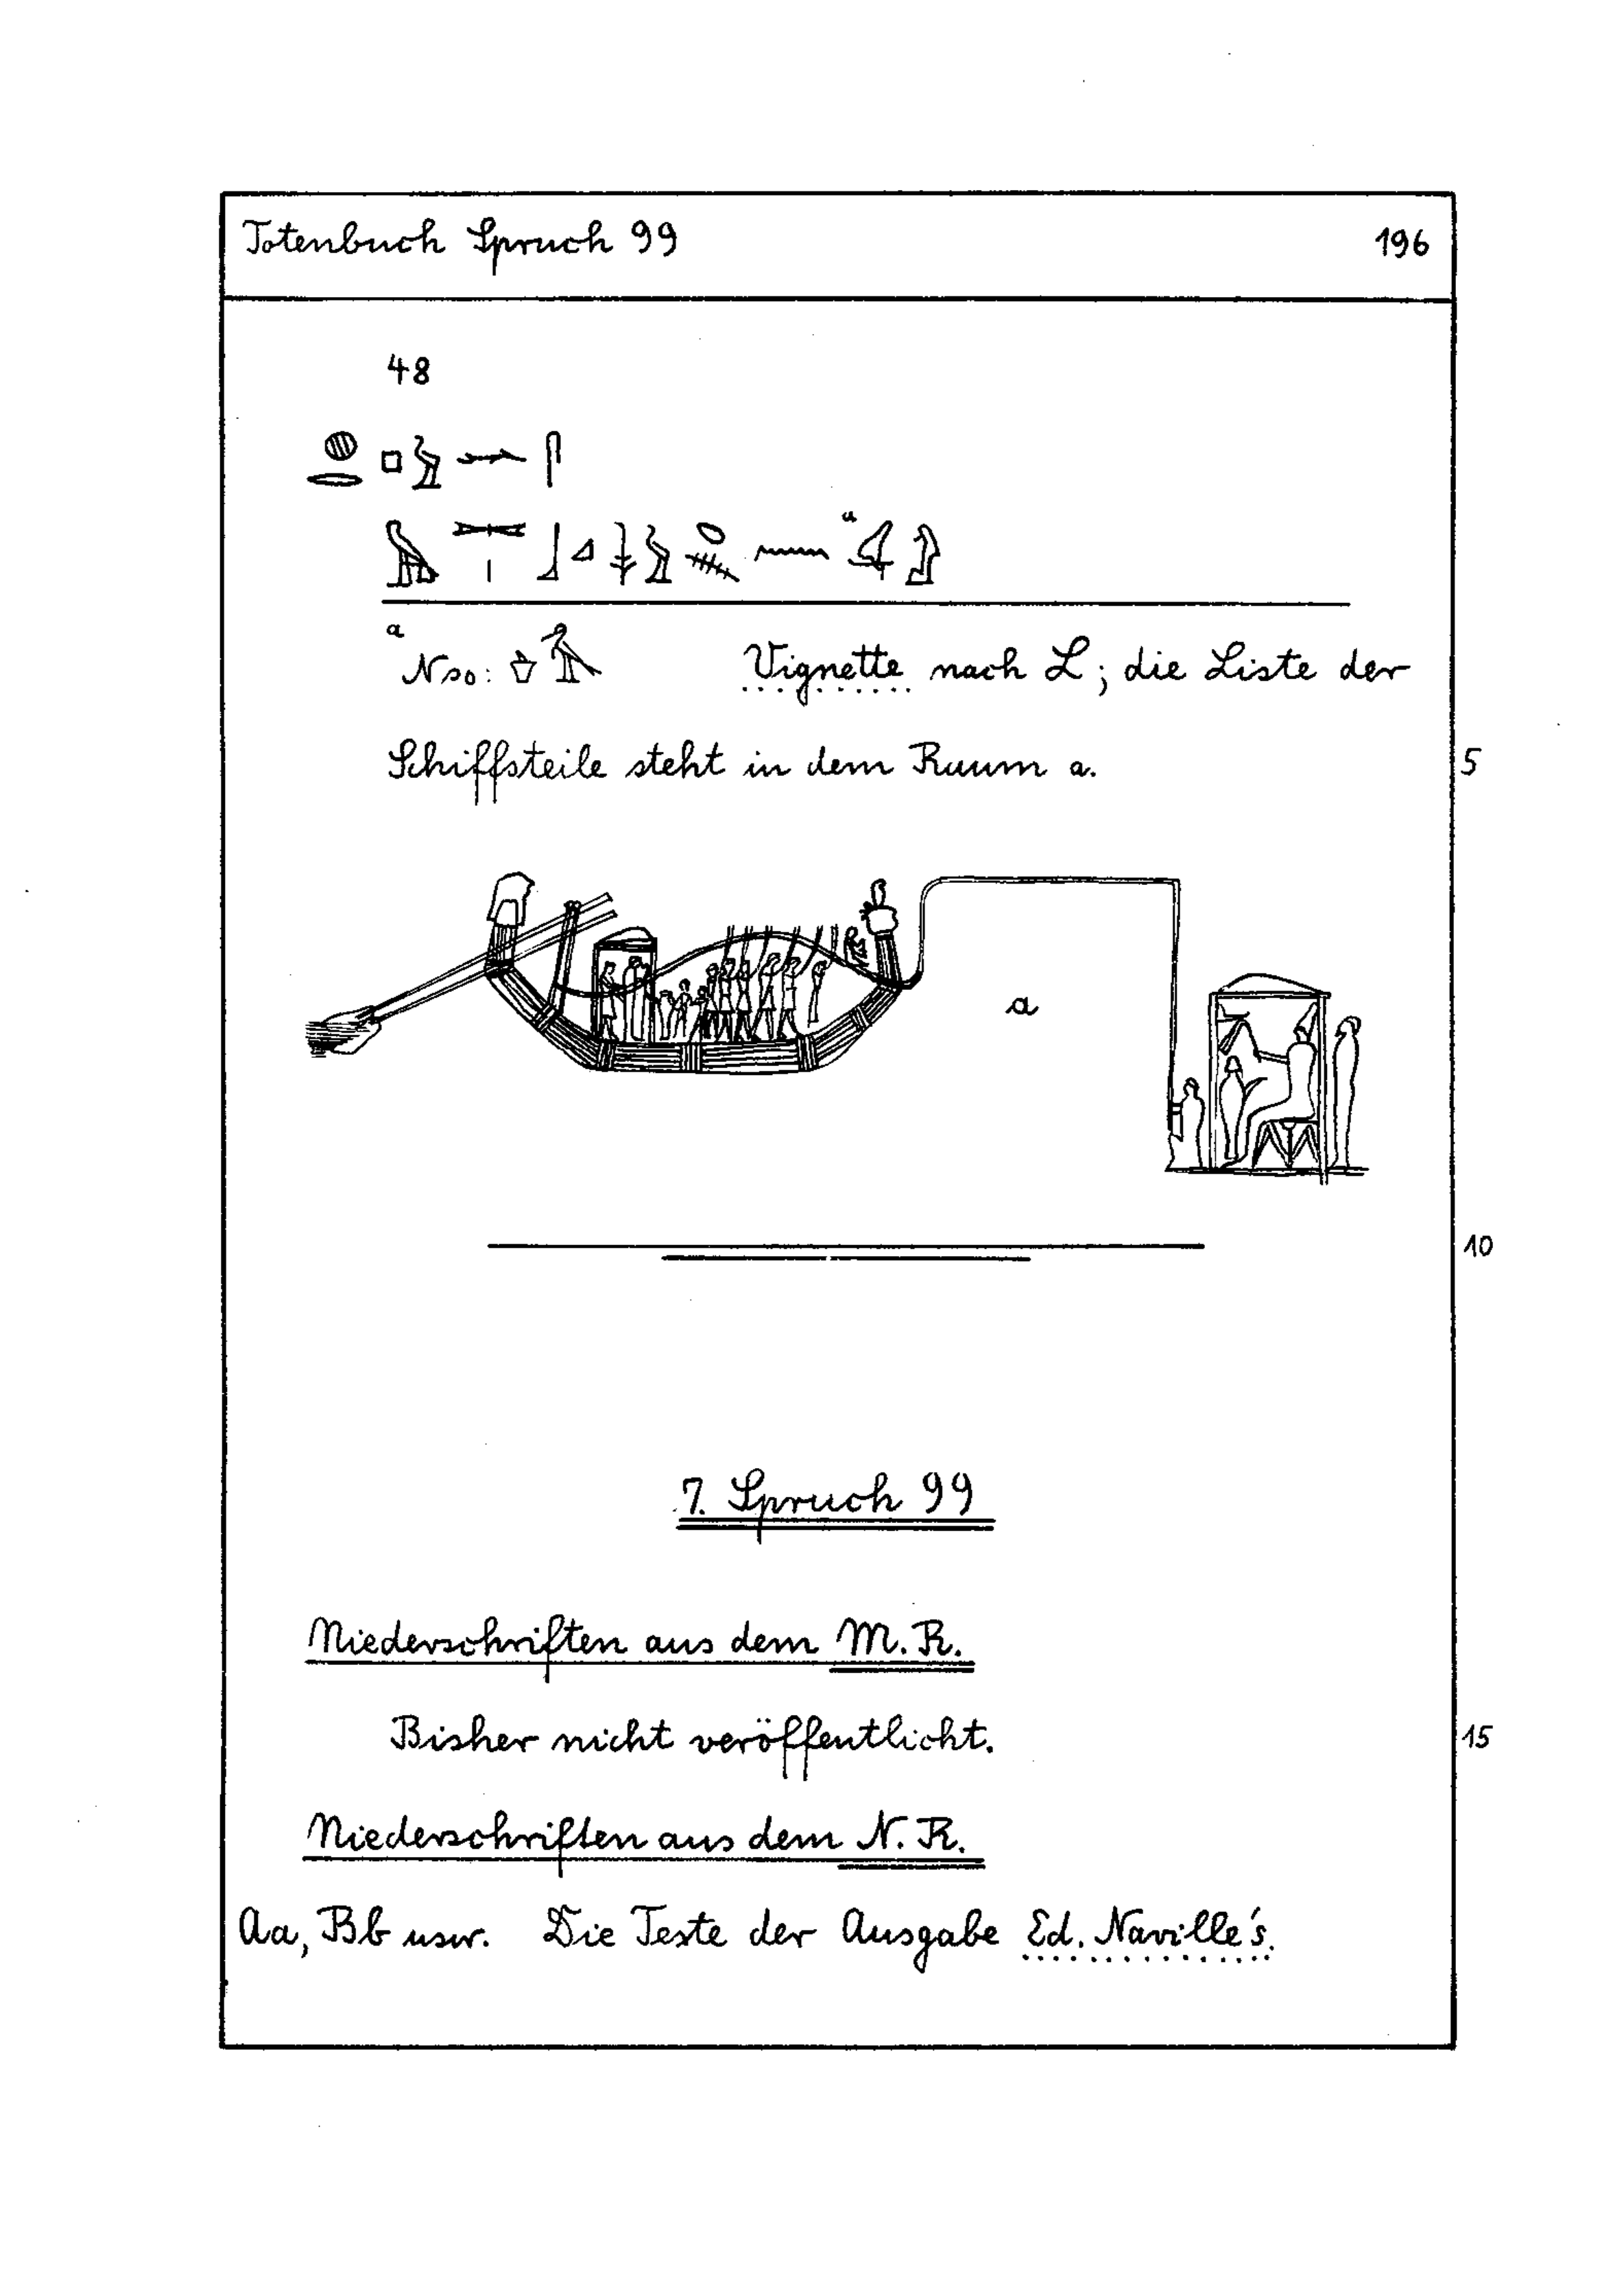 Totenbuch Spruch 99 196
48
a
a Nso: Vignette nach L; die Liste der
Schiffsteile steht in dem Raum a.
5
a
10
7. Spruch 99
Niederschriften aus dem M.R.
Bisher nicht veröffentlicht.
15
Niederschriften aus dem N.R.
Aa, Bb usw. Die Texte der Ausgabe Ed. Naville's.